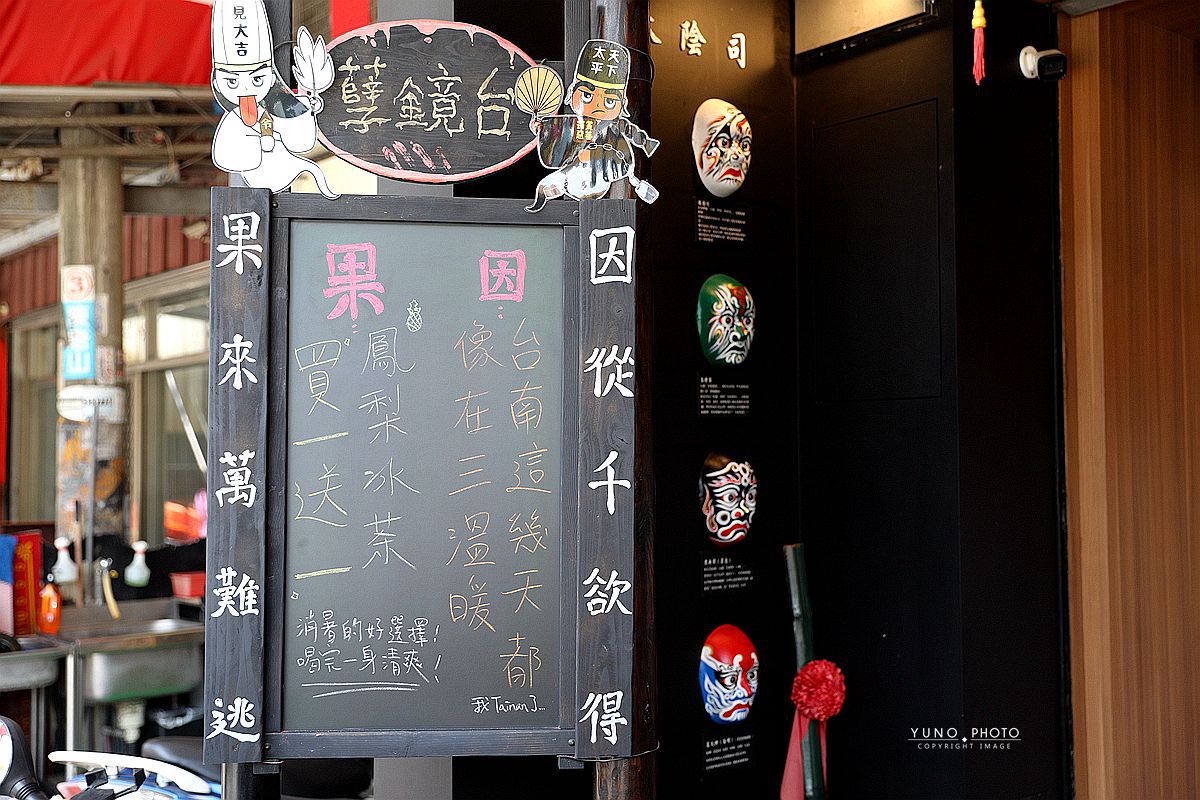 見大吉
天下
太平
孽鏡台
陰司
因從千欲得
果來萬難逃
因
台南這幾天都
像在三溫暖
果
鳳梨冰茶
買一送一
消暑的好選擇!
喝完一身清爽!
我Tainan了...
YUNO PHOTO
COPYRIGHT IMAGE